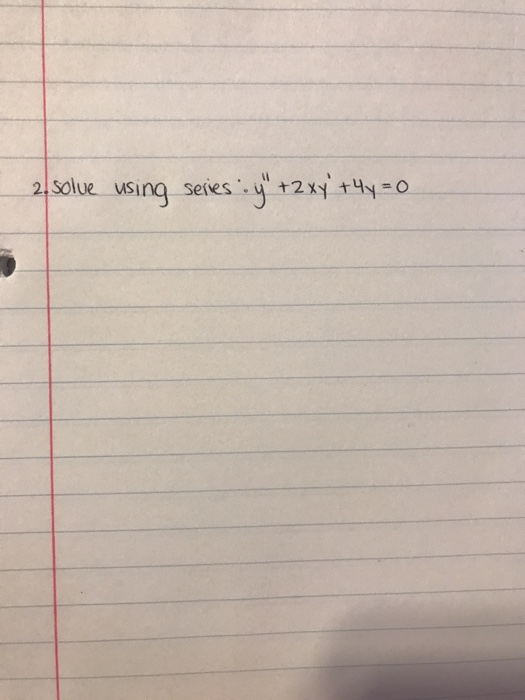 2. Solve using series: y" + 2xy' + 4y = 0